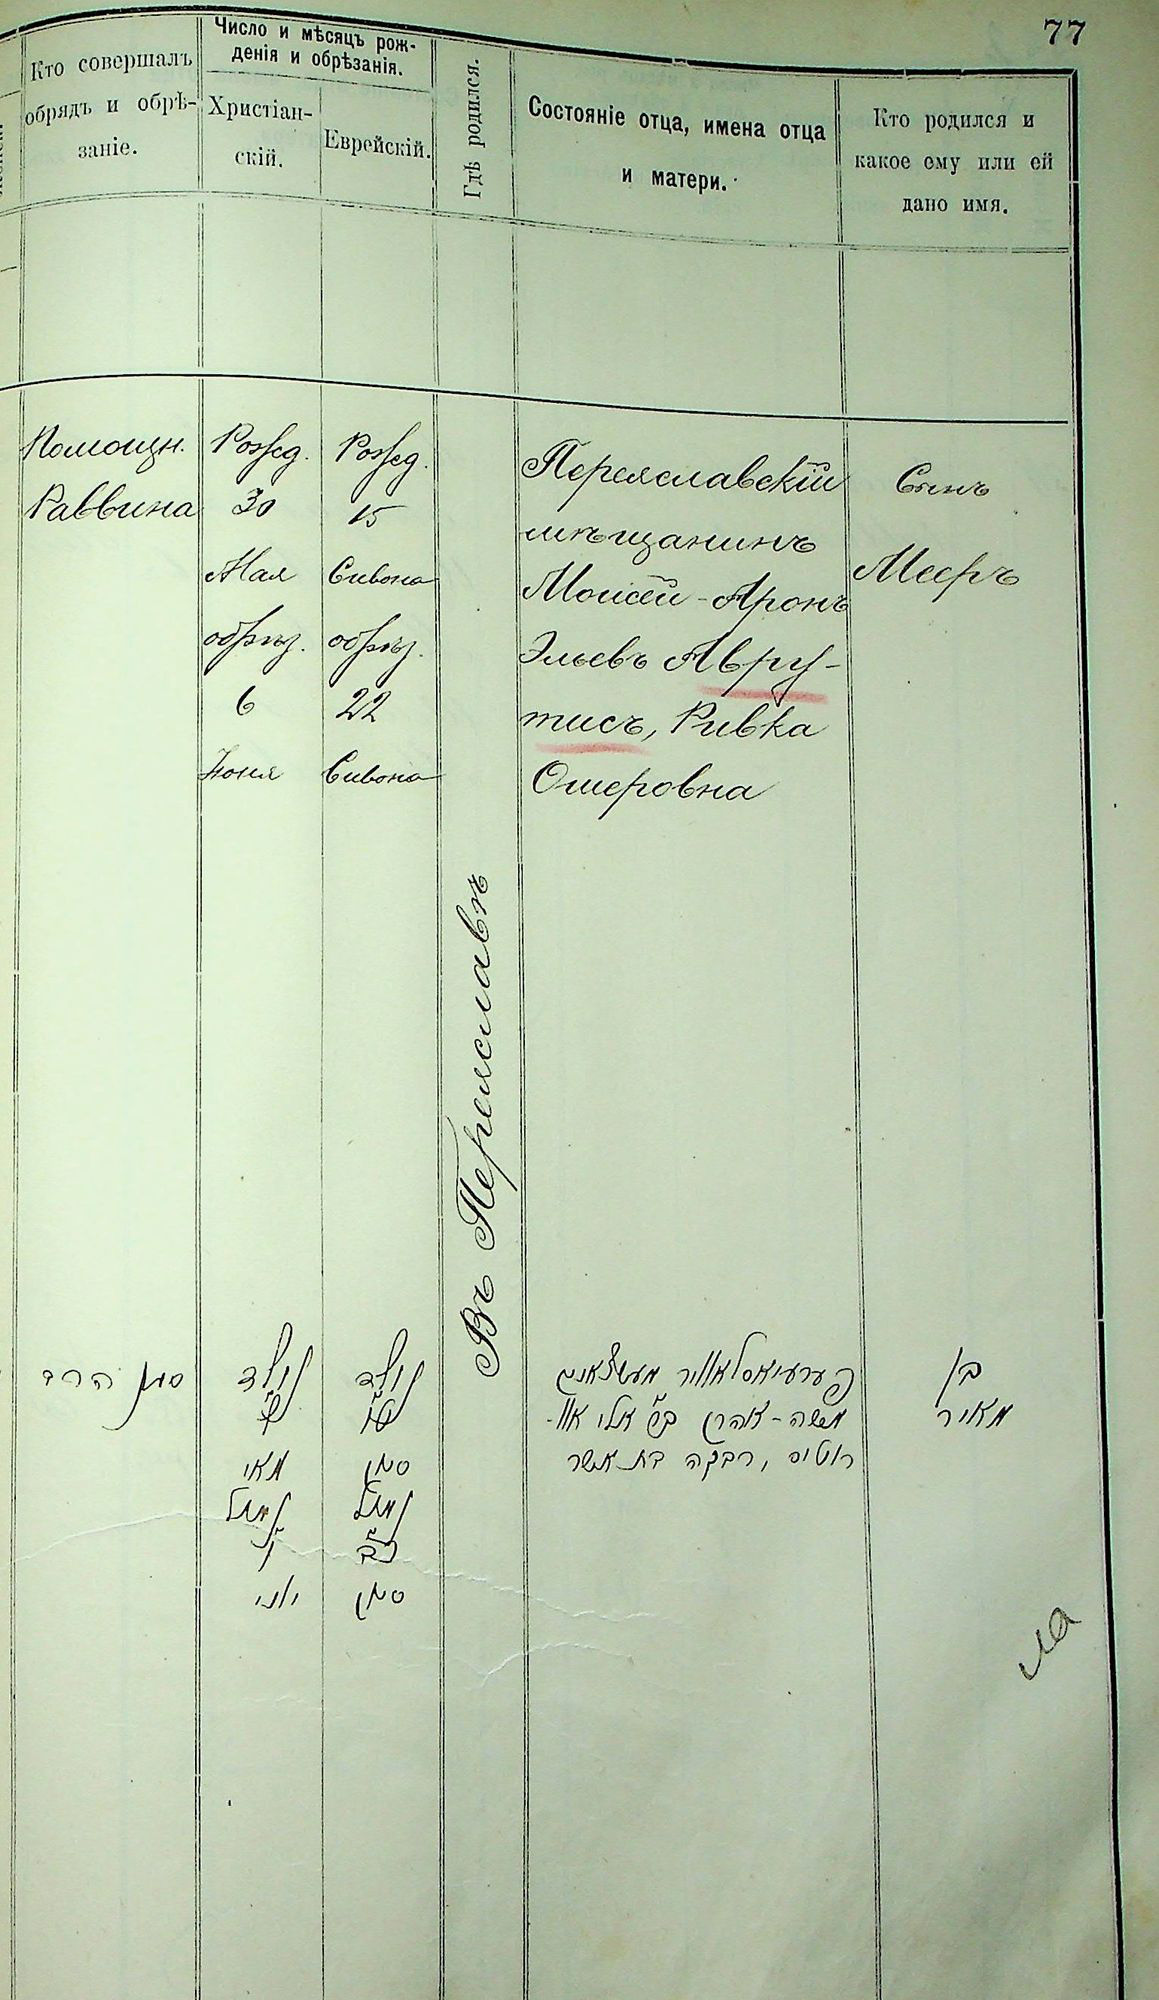 77
Кто совершалъ
обрядъ и обрѣ-
заніе.
Число и мѣсяцъ рож-
денія и обрѣзанія.
Христіан-
скій.
Еврейскій.
Гдѣ родился.
Состояніе отца, имена отца
и матери.
Кто родился и
какое ему или ей
дано имя.
Помощн.
Раввина
Рожд.
30
Мая
обрѣз.
6
Іюня
Рожд.
15
Сивона
обрѣз.
22
Сивона
Въ Переяславѣ
Переяславскій
мѣщанинъ
Моисей-Аронъ
Эльевъ Авру-
тисъ, Ривка
Ошеровна
Сынъ
Мееръ
סגן הרד
נולד
ל
מאי
נמול
ו
יוני
נולד
ט״ו
סיון
נמול
כ״ב
סיון
פערעיאסלאוויר מעשצאנין
משה-אהרן ב״ר אלי׳ אוו-
רוטיס, רבקה בת אשר
בן
מאיר